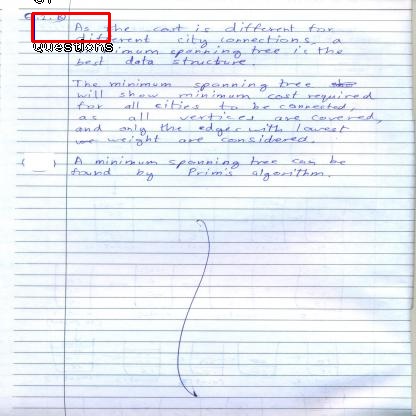 Q.2.B)
As the cost is different for
different city connections, a
minimum spanning tree is the
best data structure.
The minimum spanning tree
will show minimum cost required
for all cities to be connected,
as all vertices are covered,
and only the edges with lowest
weight are considered.
A minimum spanning tree can be
found by Prim's algorithm.
Questions